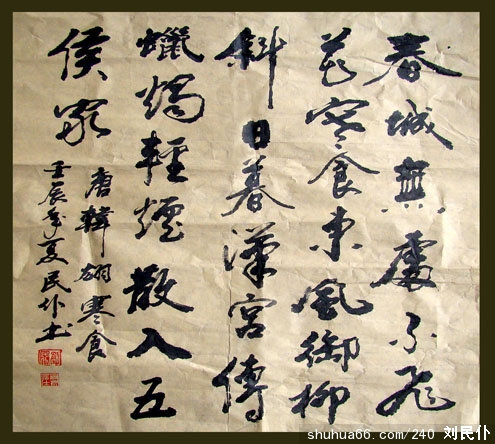 春城無處不飛
花寒食東風御柳
斜日暮漢宮傳
蠟燭輕煙散入五
侯家
唐韓翃寒食
壬辰年夏民仆书
shuhua66.com/240 刘民仆